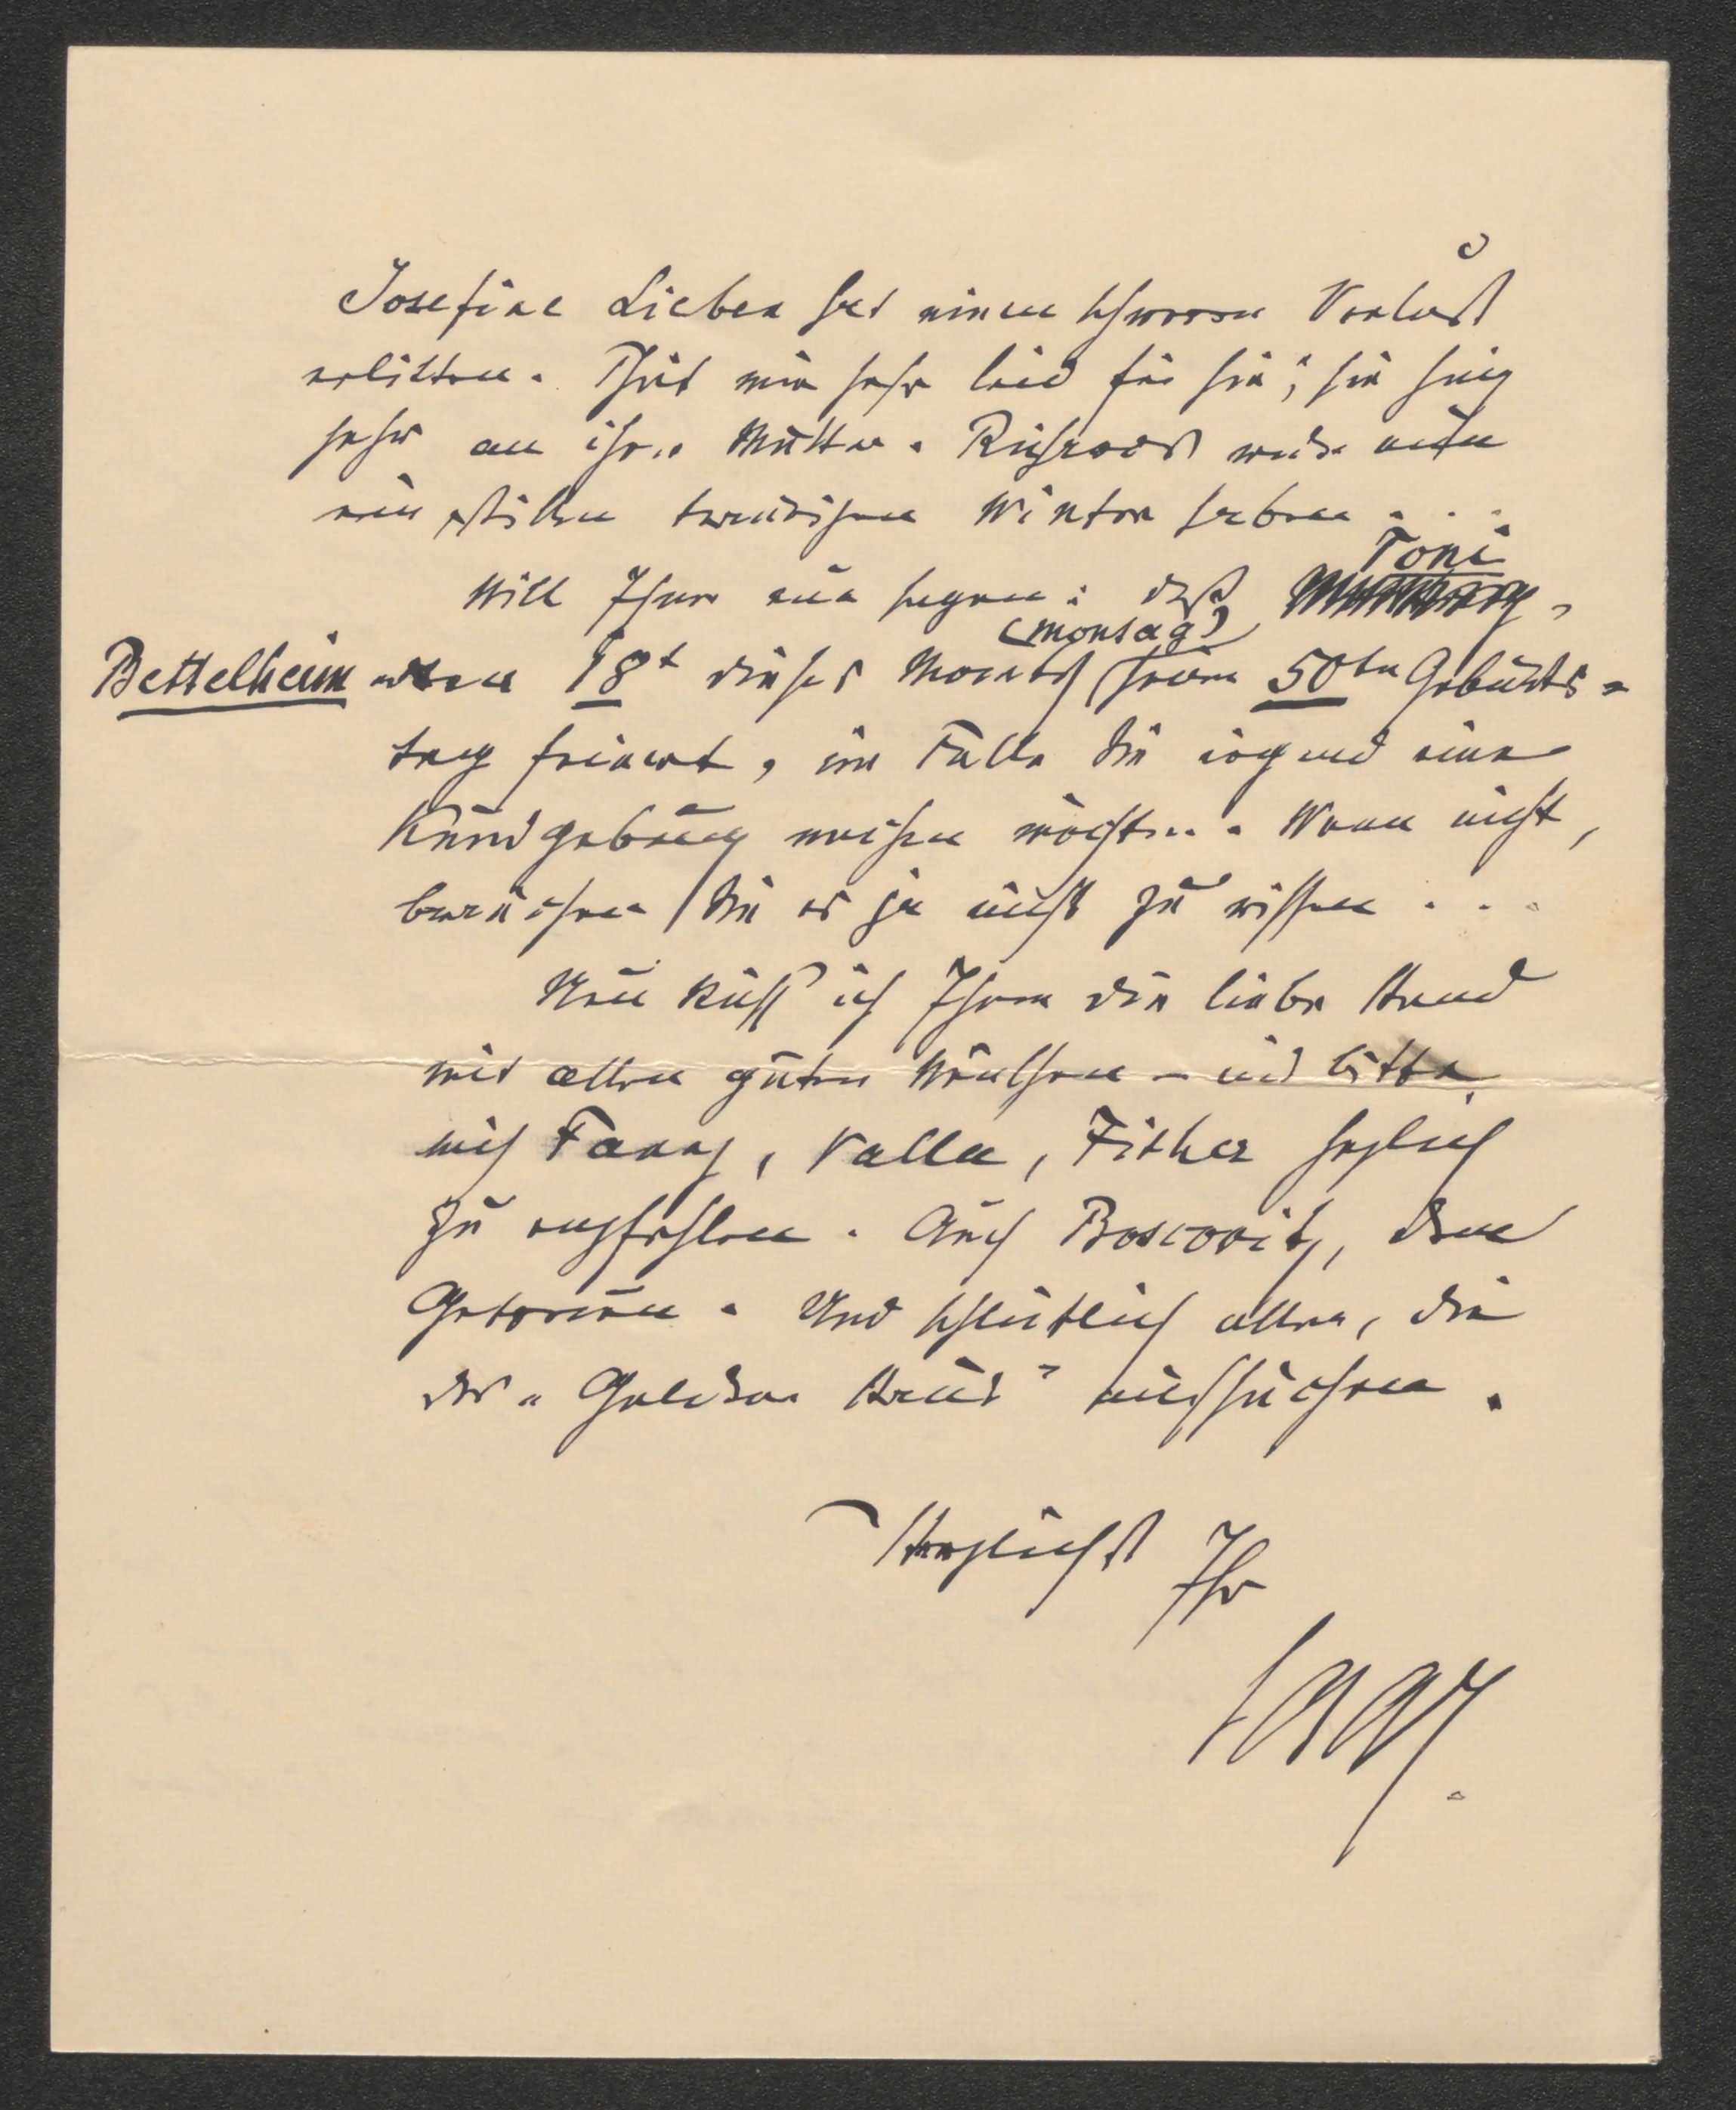 Josefine Lieben hat einen schweren Verlust
erlitten. Thut mir sehr leid für sie; sie hing
sehr an ihrer Mutter. Rührend wird nun
ein stillen traurigen Winter haben . . .
Will Ihnen nur sagen: daß Toni
(Montag)
Bettelheim den 18t dieses Monats seine 50ten Geburts-
tag feiert, im Falle Sie irgend eine
Kundgebung machen möchten. Wenn nicht,
brauchen Sie es ja nicht zu wissen . . .
Nun küss' ich Ihnen die liebe Hand
mit allen guten Wünschen – und bitte,
mich Fanny, Valla, zu herzlich
zu empfehlen. Auch Boscovitz, dem
Getreuen. Und schließlich allen, die
das „Goldene Haus" aufsuchen.
Herzlichst Ihr
Saar.